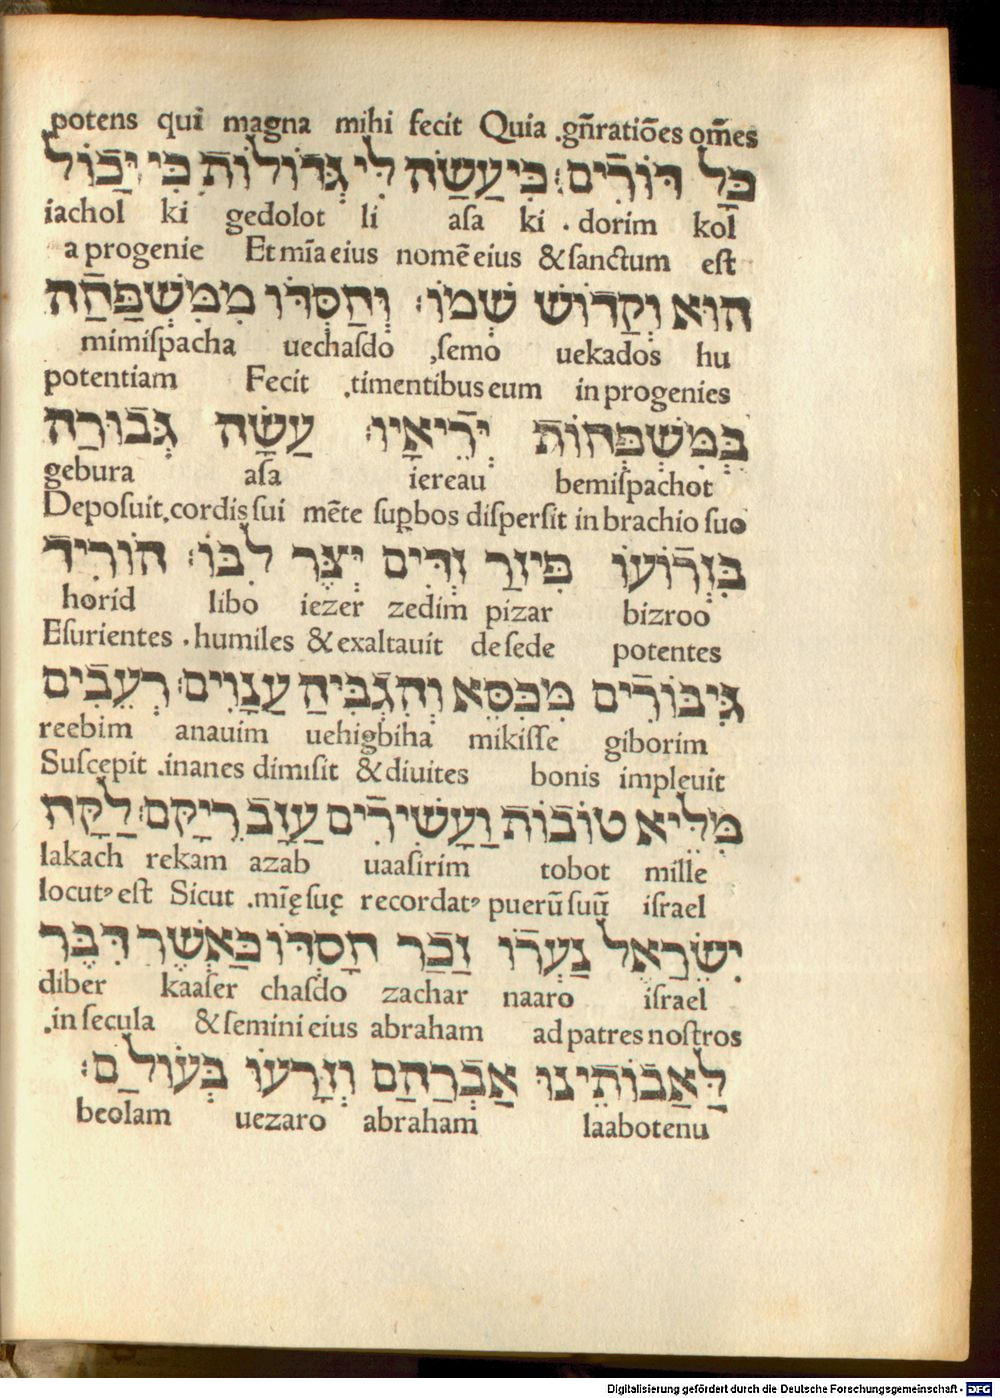 potens qui magna mihi fecit Quia .gñratiões om̃es
כָּל דּוֹרִים: כִּי עַשַׂה לִי גְּדוֹלוֹת כִּי יַבוֹל
iachol ki gedolot li aſa ki . dorim kol
a progenie Et mĩa eius nomẽ eius & ſanctum eſt
הוּא וְקַדוֹשׁ שְׁמוֹ: וְחַסְדּוֹ מִמִּשְׁפַּחַה
mimiſpacha uechaſdo ,ſemo uekados hu
potentiam Fecit .timentibus eum in progenies
בְּמִשְׁפְּחוֹת יְרֵיאָיו: עַשָׂה גְּבוּרַה
gebura aſa iereau bemiſpachot
Depoſuit.cordis ſui mẽte ſuꝑbos diſperſit in brachio ſuo
בִּזְרוֹעוֹ פִּיזַר זְדִּים יְצֶר לִבּוֹ: הוֹרִיד
horid libo iezer zedim pizar bizroo
Eſurientes . humiles & exaltauit de ſede potentes
גִּיבּוֹרִים מִכִּסֵּא וְהִגְבִּיהַ עַנָוִים: רְעֵבִים
reebim anauim uehigbiha mikiſſe giborim
Suſcepit .inanes dimiſit & diuites bonis impleuit
מִלֵּיא טוֹבוֹת וַעָשִׁירִים עַזָב רֵיקָם: לַקָּח
lakach rekam azab uaaſirim tobot mille
locutꝰ eſt Sicut .mĩę ſuę recordatꝰ puerũ ſuũ iſrael
יִשְׂרַאֵל נַעְרוֹ זַכַר חָסְדּוֹ כַּאְשֶׁר דִּבֶּר
diber kaaſer chaſdo zachar naaro iſrael
.in ſecula & ſemini eius abraham ad patres noſtros
לַּאַבוֹתֵינוּ אַבְרַהַם וְזָרְעוֹ בְּעוֹלַם:
beolam uezaro abraham laabotenu
Digitalisierung gefördert durch die Deutsche Forschungsgemeinschaft - DFG